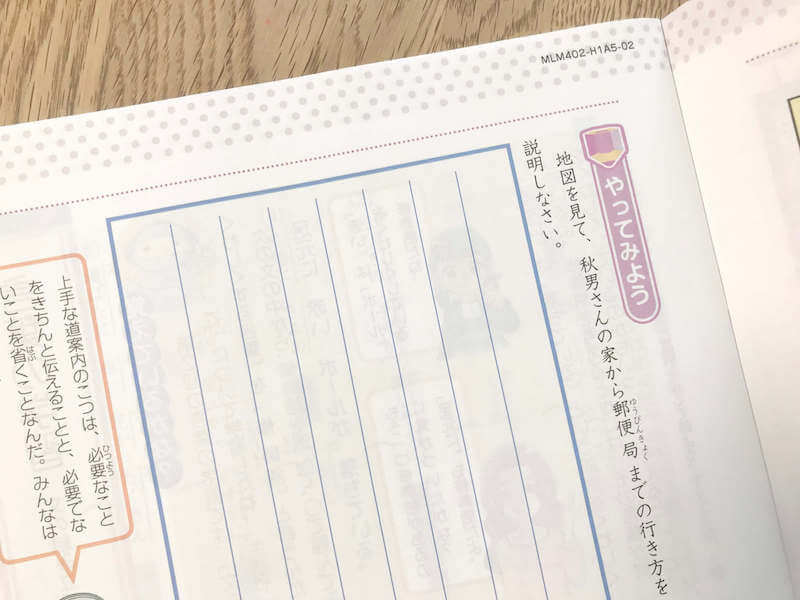 MLM402-H1A5-02
やってみよう
地図を見て、秋男さんの家から郵便局までの行き方を
説明しなさい。
上手な道案内のこつは、必要なこと
をきちんと伝えることと、必要でな
いことを省くことなんだ。みんなは